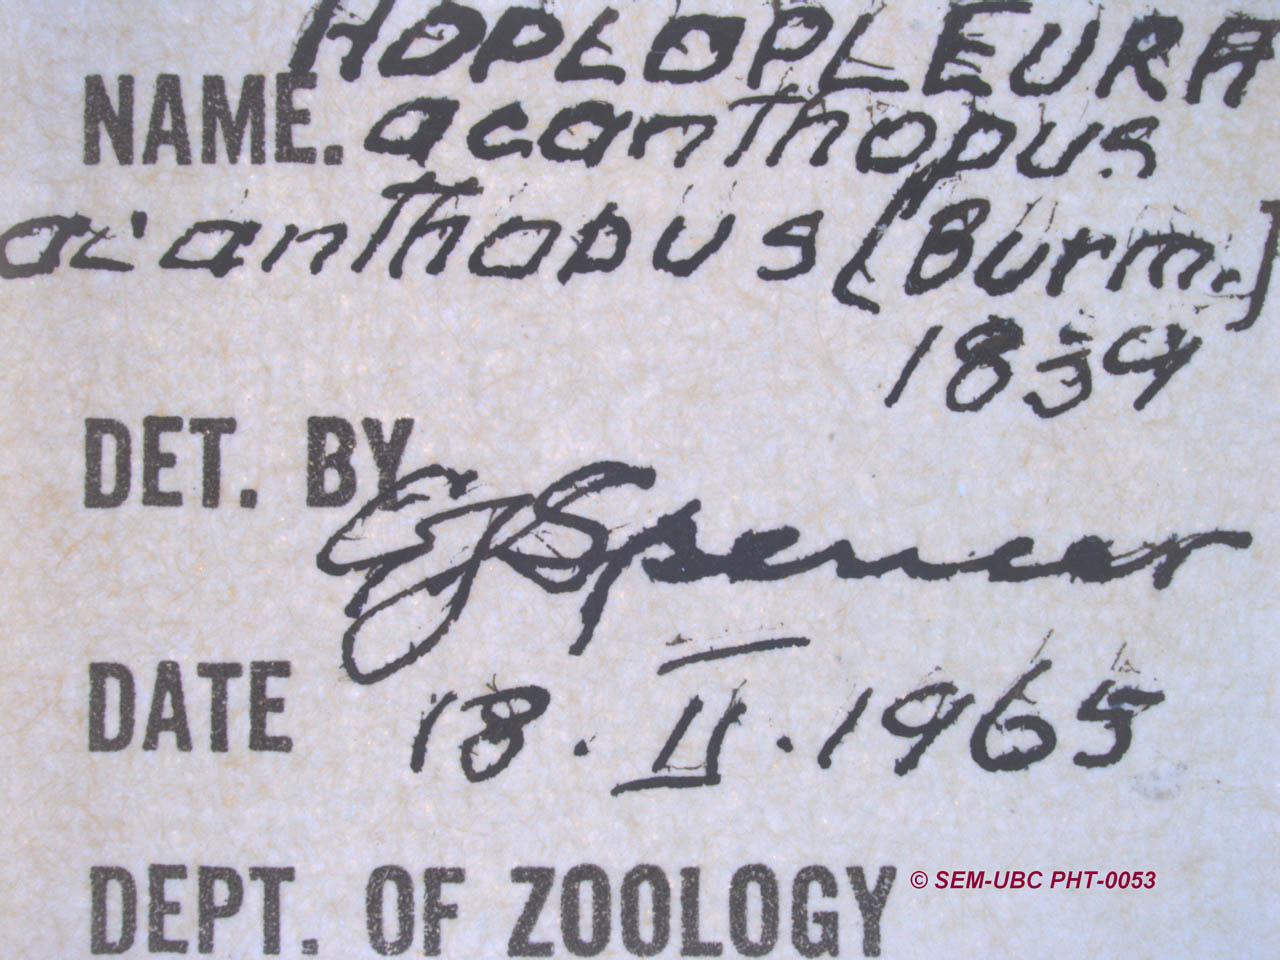 HOPLOPLEURA
NAME. acanthopus
acanthopus [Burm.]
1839
DET. BY EJSpencer
DATE 18.II.1965
DEPT. OF ZOOLOGY
© SEM-UBC PHT-0053